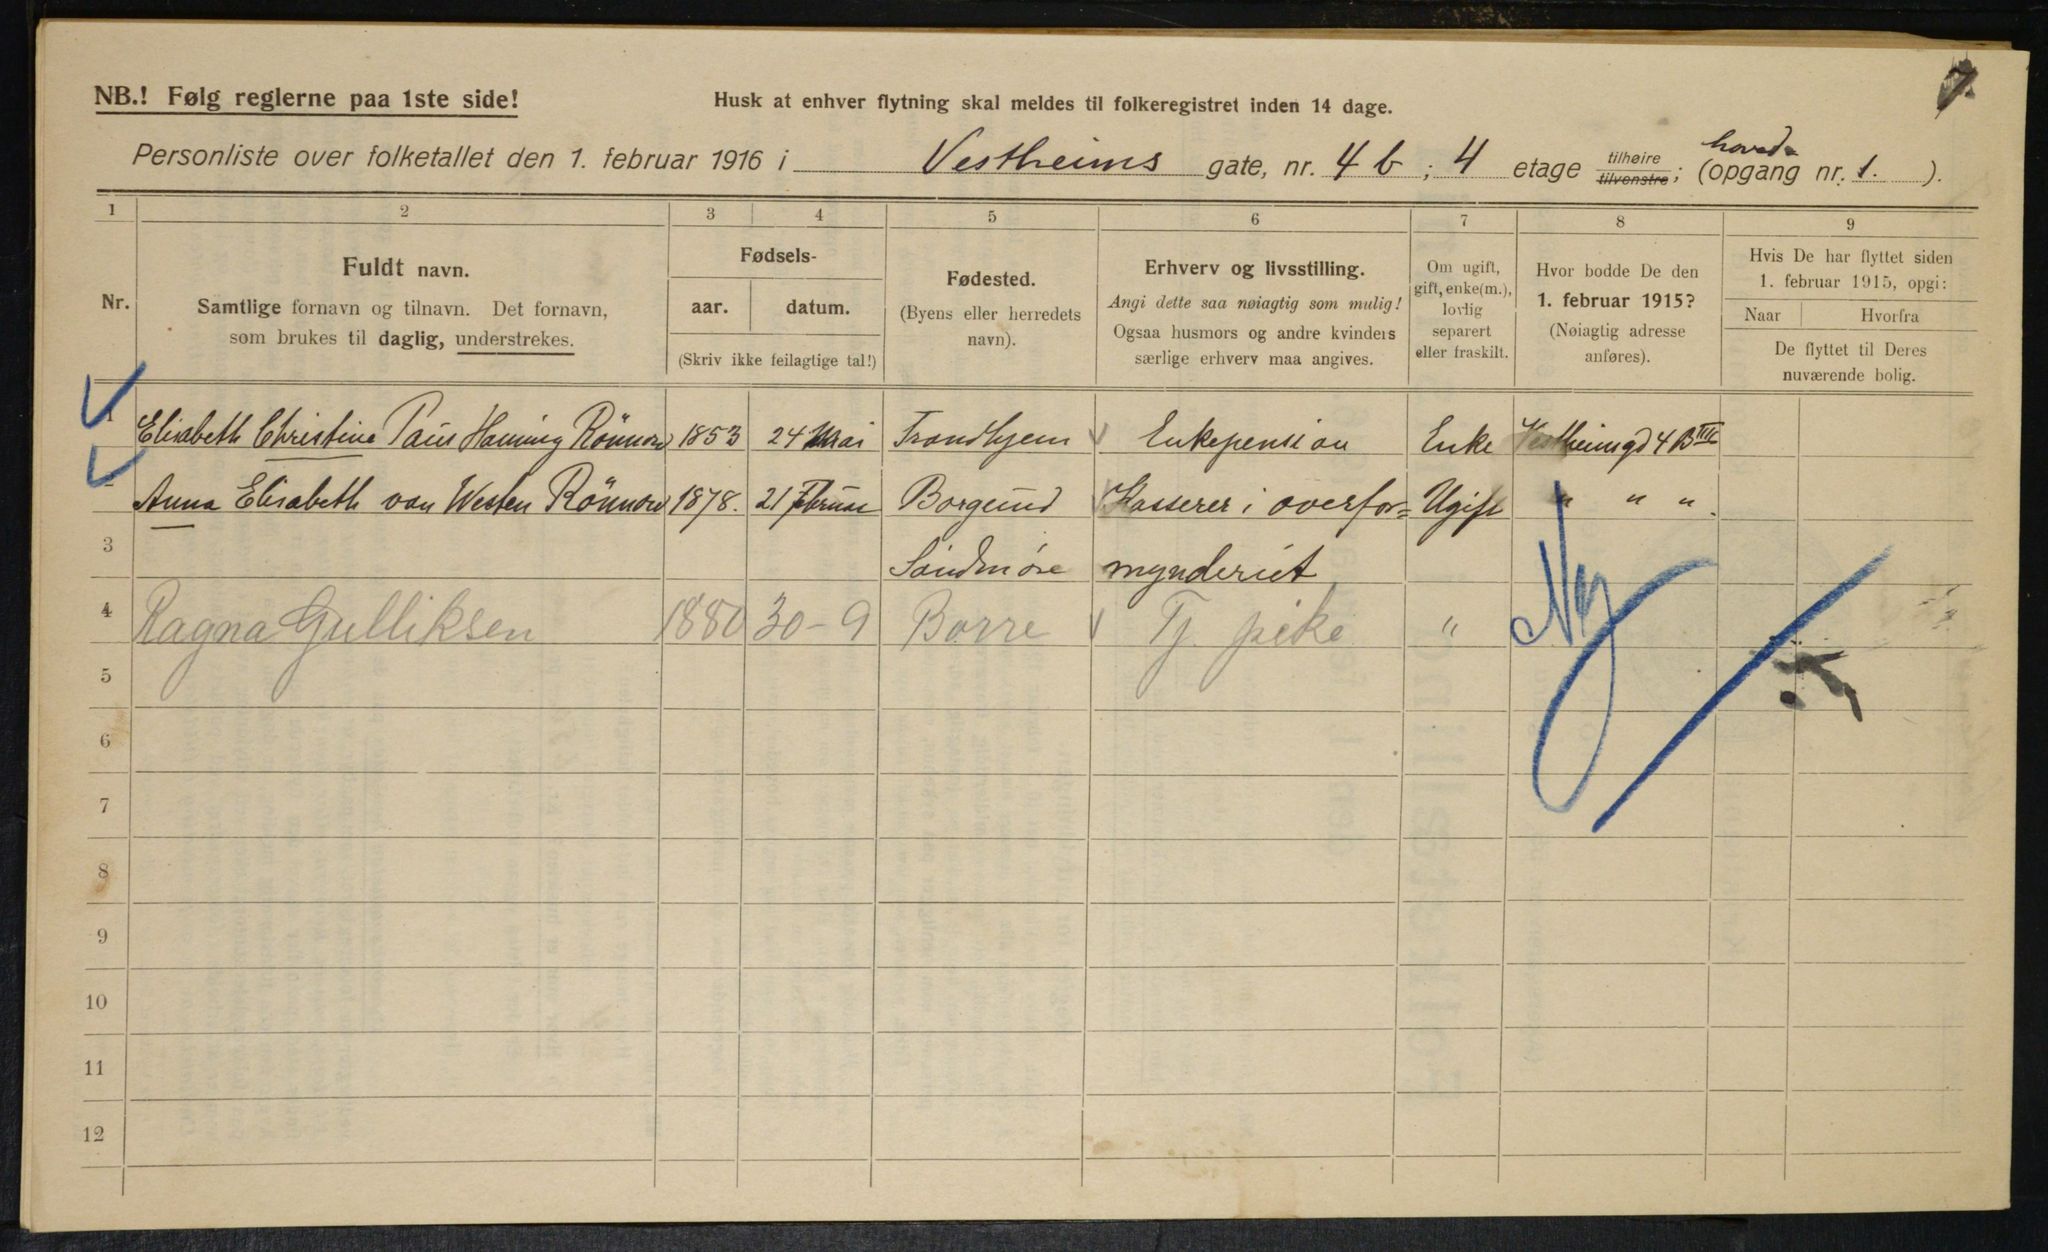 NB.! Følg reglerne paa 1ste side!
Husk at enhver flytning skal meldes til folkeregistret inden 14 dage.
Personliste over folketallet den 1. februar 1916 i Vestheims gate, nr. 4 b ; 4 etage tilhøire tilvenstre; (hoved- opgang nr. 1. ).
1 2 3 4 5 6 7 8 9
Nr.
Fuldt navn.
Samtlige fornavn og tilnavn. Det fornavn,
som brukes til daglig, understrekes.
Fødsels-
aar. datum.
(Skriv ikke feilagtige tal!)
Fødested.
(Byens eller herredets
navn).
Erhverv og livsstilling.
Angi dette saa nøiagtig som mulig!
Ogsaa husmors og andre kvinders
særlige erhverv maa angives.
Om ugift,
gift, enke(m.),
lovlig
separert
eller fraskilt.
Hvor bodde De den
1. februar 1915?
(Nøiagtig adresse
anføres).
Hvis De har flyttet siden
1. februar 1915, opgi:
Naar Hvorfra
De flyttet til Deres
nuværende bolig.
1 Elisabeth Christine Paus Rönnow 1853 24 Mai Trondhjem Enkepension Enke 4 B III
2 Anna Elisabeth von Westen Rönnow 1878. 21 Februar Borgund Kasserer i overfor= Ugift " " "
3 Søndmøre mynderiet
4 Ragna Gulliksen 1880 30-9 Borre Tj. pike " Ny
5
6
7
8
9
10
11
12